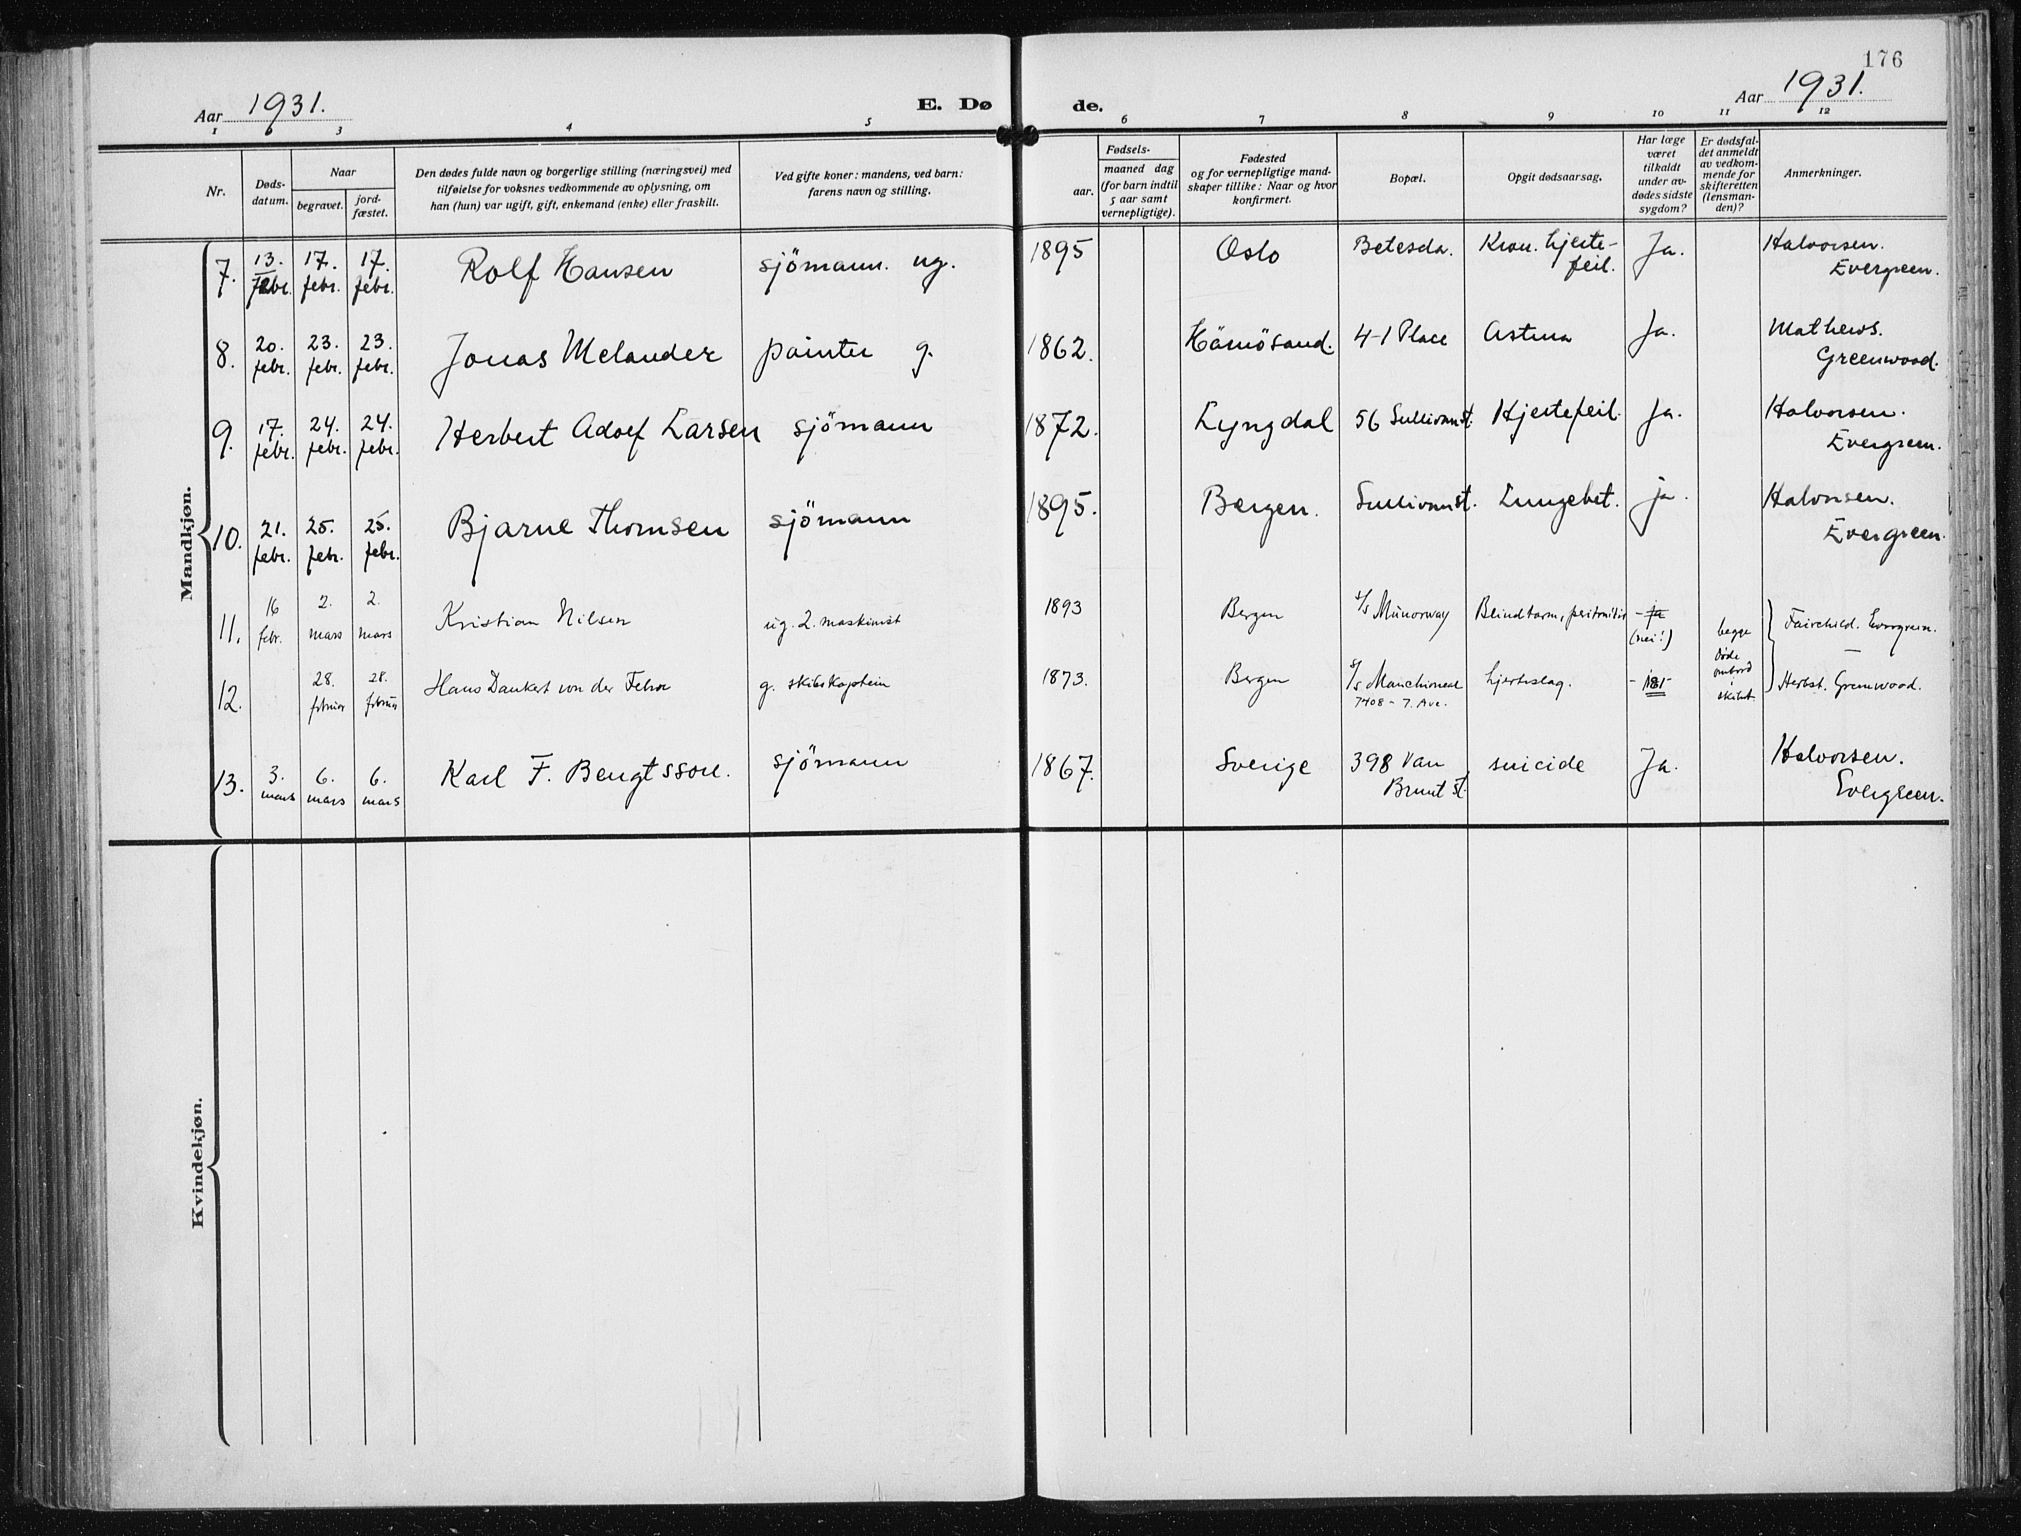 176
Aar 1931.
E. Døde.
Aar 1931.
1 2 3 4 5 6 7 8 9 10 11 12
Nr.
Døds-
datum.
Naar
begravet.
jord-
fæstet.
Den dødes fulde navn og borgerlige stilling (næringsvei) med
tilføielse for voksnes vedkommende av oplysning, om
han (hun) var ugift, gift, enkemand (enke) eller fraskilt.
Ved gifte koner: mandens, ved barn:
farens navn og stilling.
Fødsels-
aar.
maaned dag
(for barn indtil
5 aar samt
vernepligtige).
Fødested
og for vernepligtige mand-
skaper tillike: Naar og hvor
konfirmert.
Bopæl.
Opgit dødsaarsag.
Har læge
været
tilkaldt
under av-
dødes sidste
sygdom?
Er dødsfal-
det anmeldt
av vedkom-
mende for
skifteretten
(lensman-
den)?
Anmerkninger.
Mandkjøn.
7. 13. febr. 17. febr. 17. febr. Rolf Hansen sjömann. ug. 1895 Oslo Betesda. Kron. hjerte-
feil. Ja. Halvorsen.
Evergreen.
8. 20. febr. 23. febr. 23. febr. Jonas Melander painter g. 1862. Härnösand. 4-1 Place Astma Ja. Mathews.
Greenwood.
9. 17. febr. 24. febr. 24. febr. Herbert Adolf Larsen sjömann 1872. Lyngdal 56 Sullivanst. Hjertefeil. Ja. Halvorsen.
Evergreen.
10. 21. febr. 25. febr. 25. febr. Bjarne Thomsen sjömann 1895. Bergen. Sullivanst. Lungebet. ja. Halvorsen.
Evergreen.
11. 16 febr. 2. mars 2. mars Kristian Nilsen ug. 2. maskinist 1893 Bergen s/s Munorway Blindtarm, peritonitis - ja
(nei!) Fairchild. Evergreen.
begge
døde
ombord
i
skibet.
12. 28. februar 28. februar Hans Dankert von der Fehr g. skibskaptein 1873. Bergen s/s Manchioneal
7408 - 7. Ave. hjerteslag. Herbst. Greenwood.
13. 3. mars 6. mars 6. mars Karl F. Bengtsson. sjömann 1867. Sverige 398 Van
Brunt St. suicide Ja. Halvorsen.
Evergreen.
Kvindekjøn.